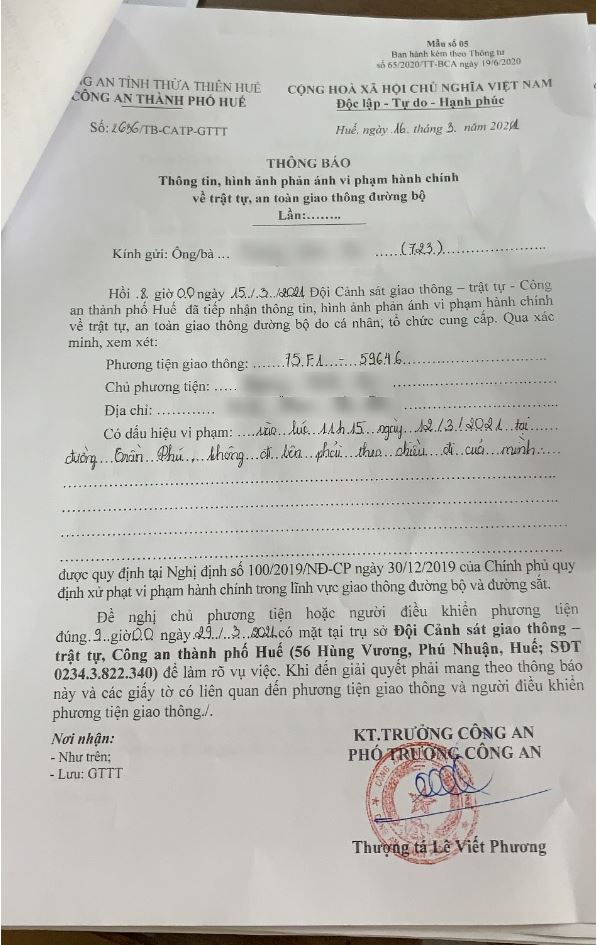 Mẫu số 05
Ban hành kèm theo Thông tư
số 65/2020/TT-BCA ngày 19/6/2020
G AN TỈNH THỪA THIÊN HUẾ
CÔNG AN THÀNH PHỐ HUẾ
CỘNG HOÀ XÃ HỘI CHỦ NGHĨA VIỆT NAM
Độc lập - Tự do - Hạnh phúc
Số: 2636/TB-CATP-GTTT
Huế, ngày 16 tháng 3 năm 2021
THÔNG BÁO
Thông tin, hình ảnh phản ánh vi phạm hành chính
về trật tự, an toàn giao thông đường bộ
Lần:........
Kính gửi: Ông/bà ... (723)
Hồi 8 giờ 00 ngày 15/3/2021 Đội Cảnh sát giao thông – trật tự - Công
an thành phố Huế đã tiếp nhận thông tin, hình ảnh phản ánh vi phạm hành chính
về trật tự, an toàn giao thông đường bộ do cá nhân, tổ chức cung cấp. Qua xác
minh, xem xét:
Phương tiện giao thông: 75F1 - 59646
Chủ phương tiện: .....
Địa chỉ: ............
Có dấu hiệu vi phạm: vào lúc 11h15 ngày 12/3/2021 tại
đường Trần Phú, không đi bên phải theo chiều đi của mình
được quy định tại Nghị định số 100/2019/NĐ-CP ngày 30/12/2019 của Chính phủ quy
định xử phạt vi phạm hành chính trong lĩnh vực giao thông đường bộ và đường sắt.
Đề nghị chủ phương tiện hoặc người điều khiển phương tiện
đúng 9 giờ 00 ngày 29/3/2021 có mặt tại trụ sở Đội Cảnh sát giao thông –
trật tự, Công an thành phố Huế (56 Hùng Vương, Phú Nhuận, Huế; SĐT
0234.3.822.340) để làm rõ vụ việc. Khi đến giải quyết phải mang theo thông báo
này và các giấy tờ có liên quan đến phương tiện giao thông và người điều khiển
phương tiện giao thông./.
Nơi nhận:
- Như trên;
- Lưu: GTTT
KT.TRƯỞNG CÔNG AN
PHÓ TRƯỞNG CÔNG AN
Thượng tá Lê Viết Phương